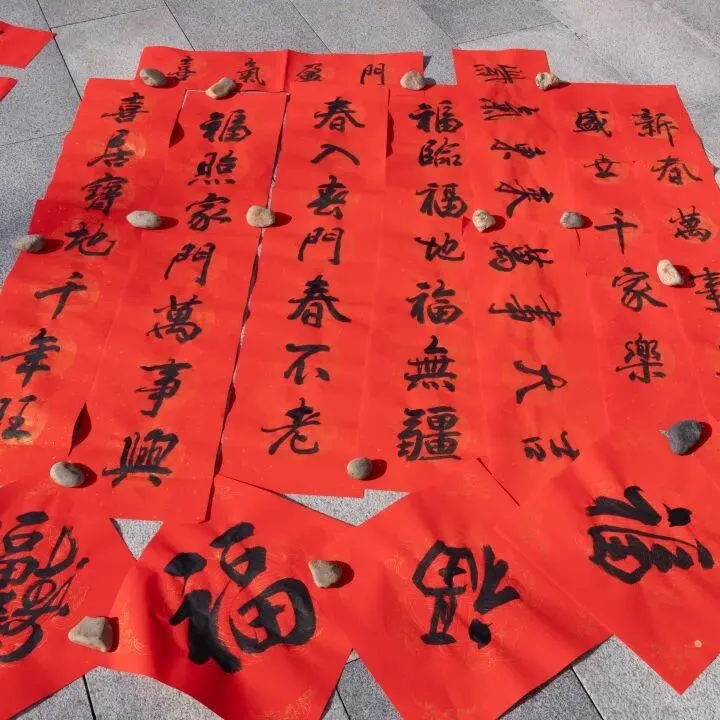 喜氣盈門
喜居寶地千年旺
福照家門萬事興
春入門春不老
福臨福地福無疆
紫氣東來
萬事大吉
盛世千家樂
新春萬
福
福
福